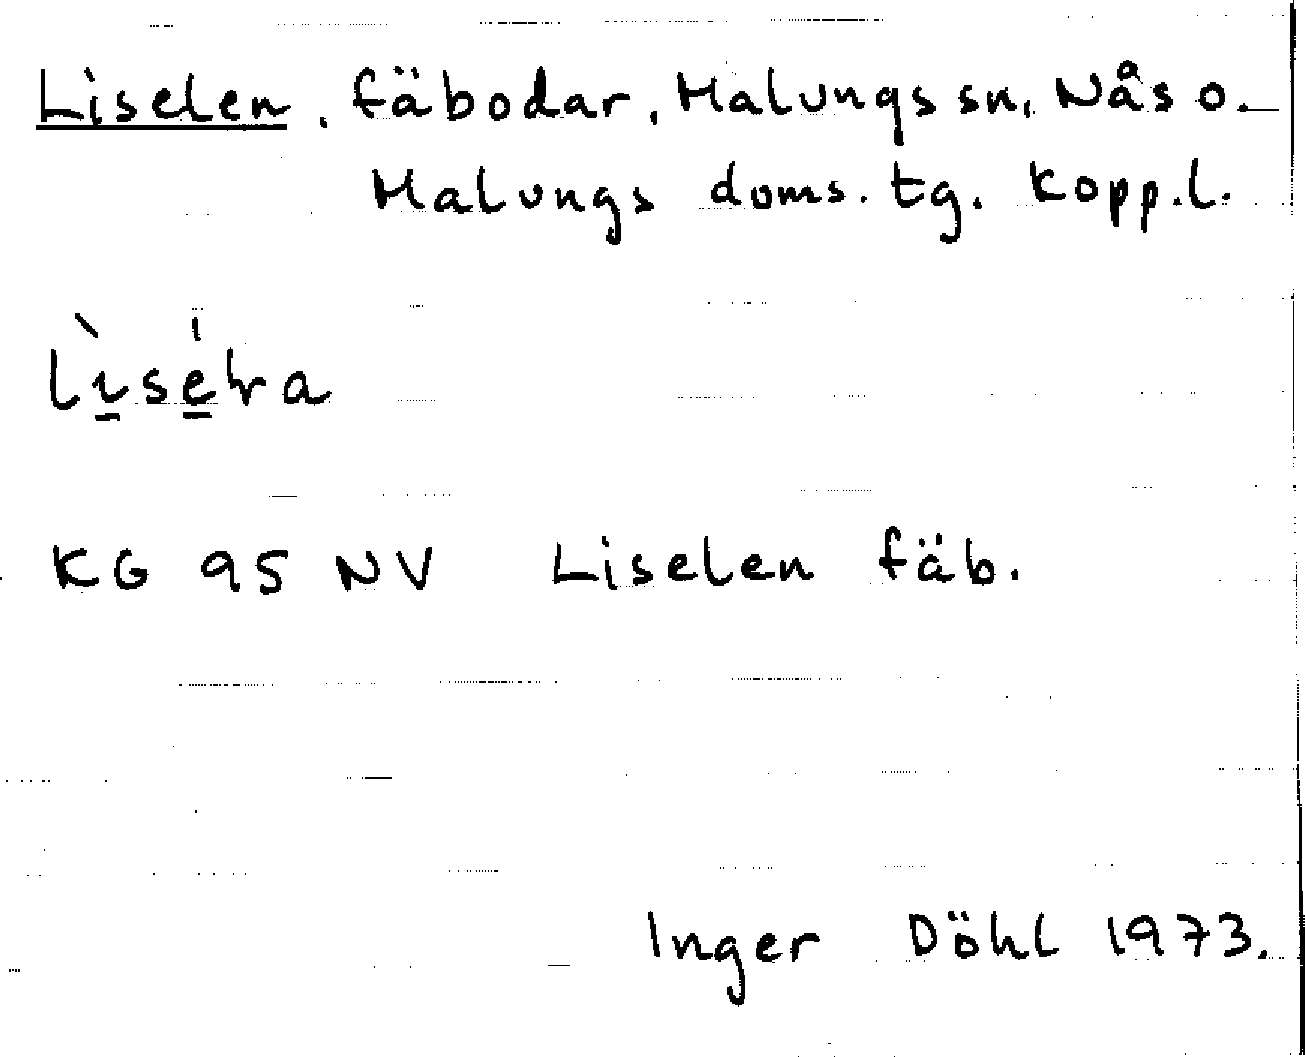 Liselen, fäbodar, Malungs sn, Nås o.
Malungs doms. tg. Kopp.l.
KG 95 NV Liselen fäb.
Inger Döhl 1973.